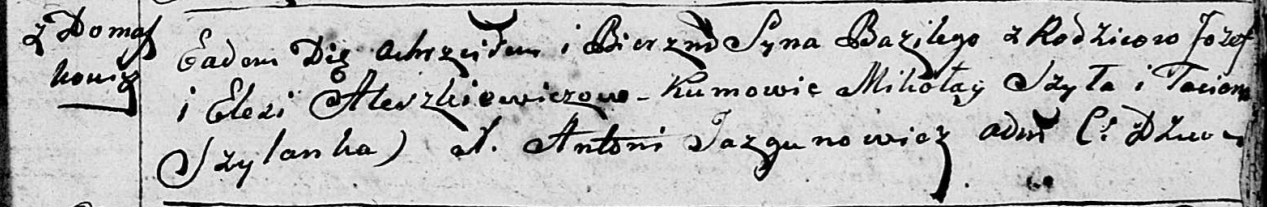 z Domasz
kowicz
Eadem Die ochrzciłem i Bierzm Syna Bazilego z Rodzicow Jozef
i Elesi Aleszkiewiczow - Kumowie Mikołay Szyła i Tacian
Szylanka) X. Antoni Jazgunowicz adm C: